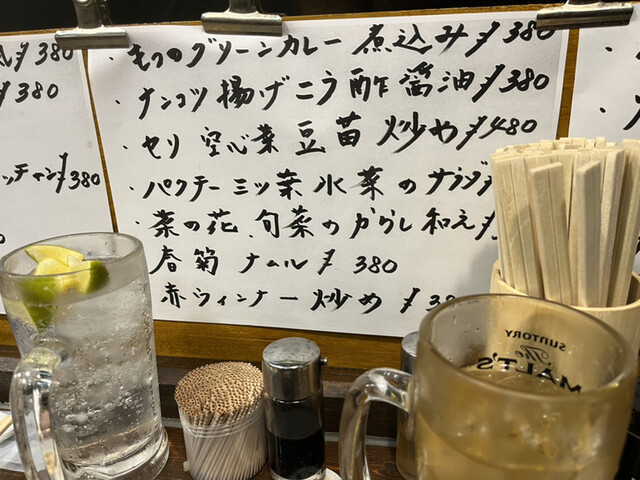 ¥380
380
ッチャン¥380
・もつのグリーンカレー煮込み¥380
・ナンコツ揚げニラ酢醤油¥380
・セリ 空心菜豆苗炒め¥480
・パクチー三ツ葉水菜のサラダ¥
・菜の花、旬菜のからし和え¥
春菊ナムル¥380
赤ウィンナー炒め¥38
SUNTORY
The
MALT'S